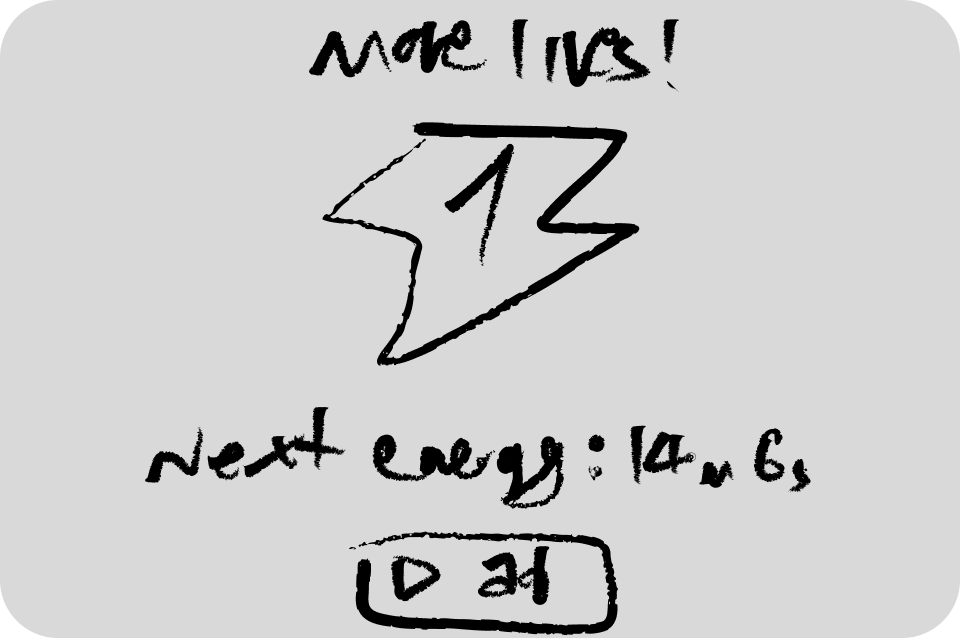 More lives!
1
Next energy: 14m 6s
ad